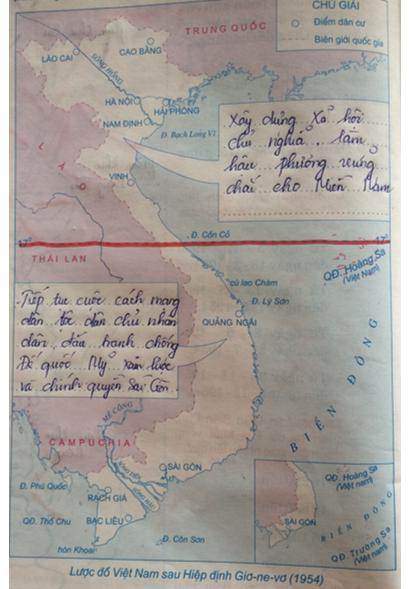 CHÚ GIẢI
Điểm dân cư
Biên giới quốc gia
TRUNG QUỐC
LÀO CAI
CAO BẰNG
SÔNG HỒNG
HÀ NỘI
HẢI PHÒNG
NAM ĐỊNH
Đ. Bạch Long Vĩ
Xây dựng Xã hội
chủ nghĩa, làm
hậu phương vững
chắc cho Miền Nam
LÀO
VINH
17°
Đ. Cồn Cỏ
17°
THÁI LAN
QĐ. Hoàng Sa
(Việt Nam)
cù lao Chàm
Đ. Lý Sơn
QUẢNG NGÃI
Tiếp tục cuộc cách mạng
dân tộc dân chủ nhân
dân, đấu tranh chống
Đế quốc Mỹ xâm lược
và chính quyền Sài Gòn.
BIỂN ĐÔNG
MÊ CÔNG
CAMPUCHIA
SÀI GÒN
SÔNG TIỀN
SÔNG HẬU
Đ. Phú Quốc
RẠCH GIÁ
QĐ. Thổ Chu
BẠC LIÊU
Đ. Côn Sơn
hòn Khoai
QĐ. Hoàng Sa
(Việt nam)
SÀI GÒN
BIỂN ĐÔNG
QĐ. Trường Sa
(Việt nam)
Lược đồ Việt Nam sau Hiệp định Giơ-ne-vơ (1954)